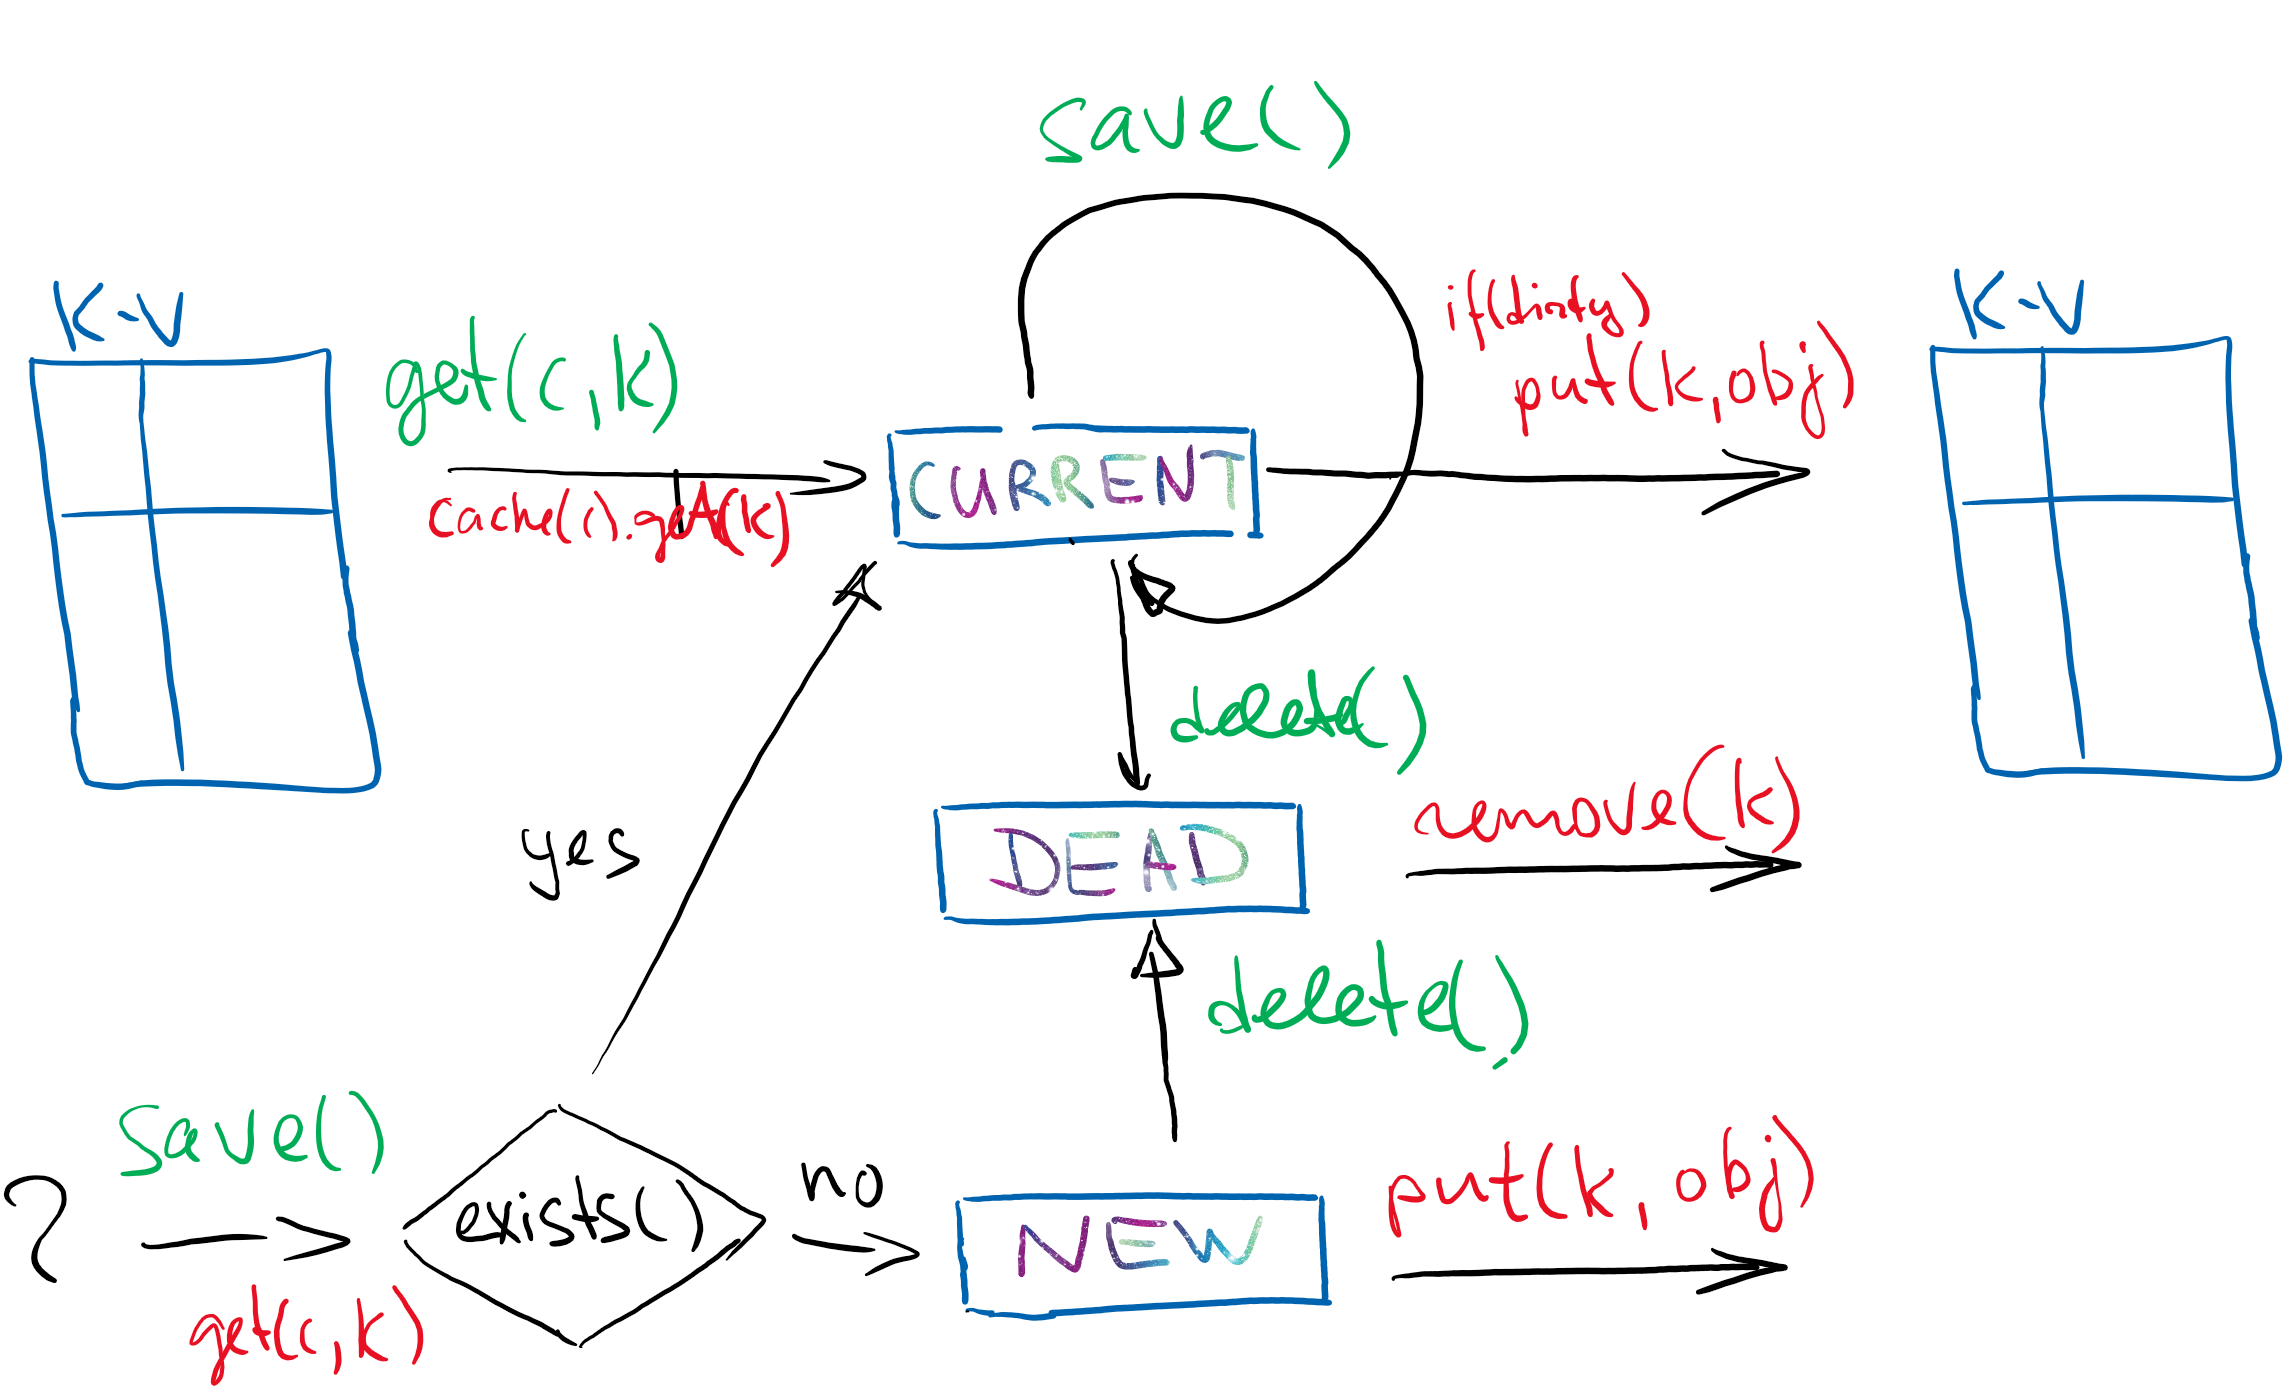 save()
K-V
get(c,k)
cache(c).get(k)
CURRENT
if(dirty)
put(k,obj)
K-V
delete()
yes
DEAD
remove(k)
delete()
?
save()
get(c,k)
exists()
no
NEW
put(k,obj)